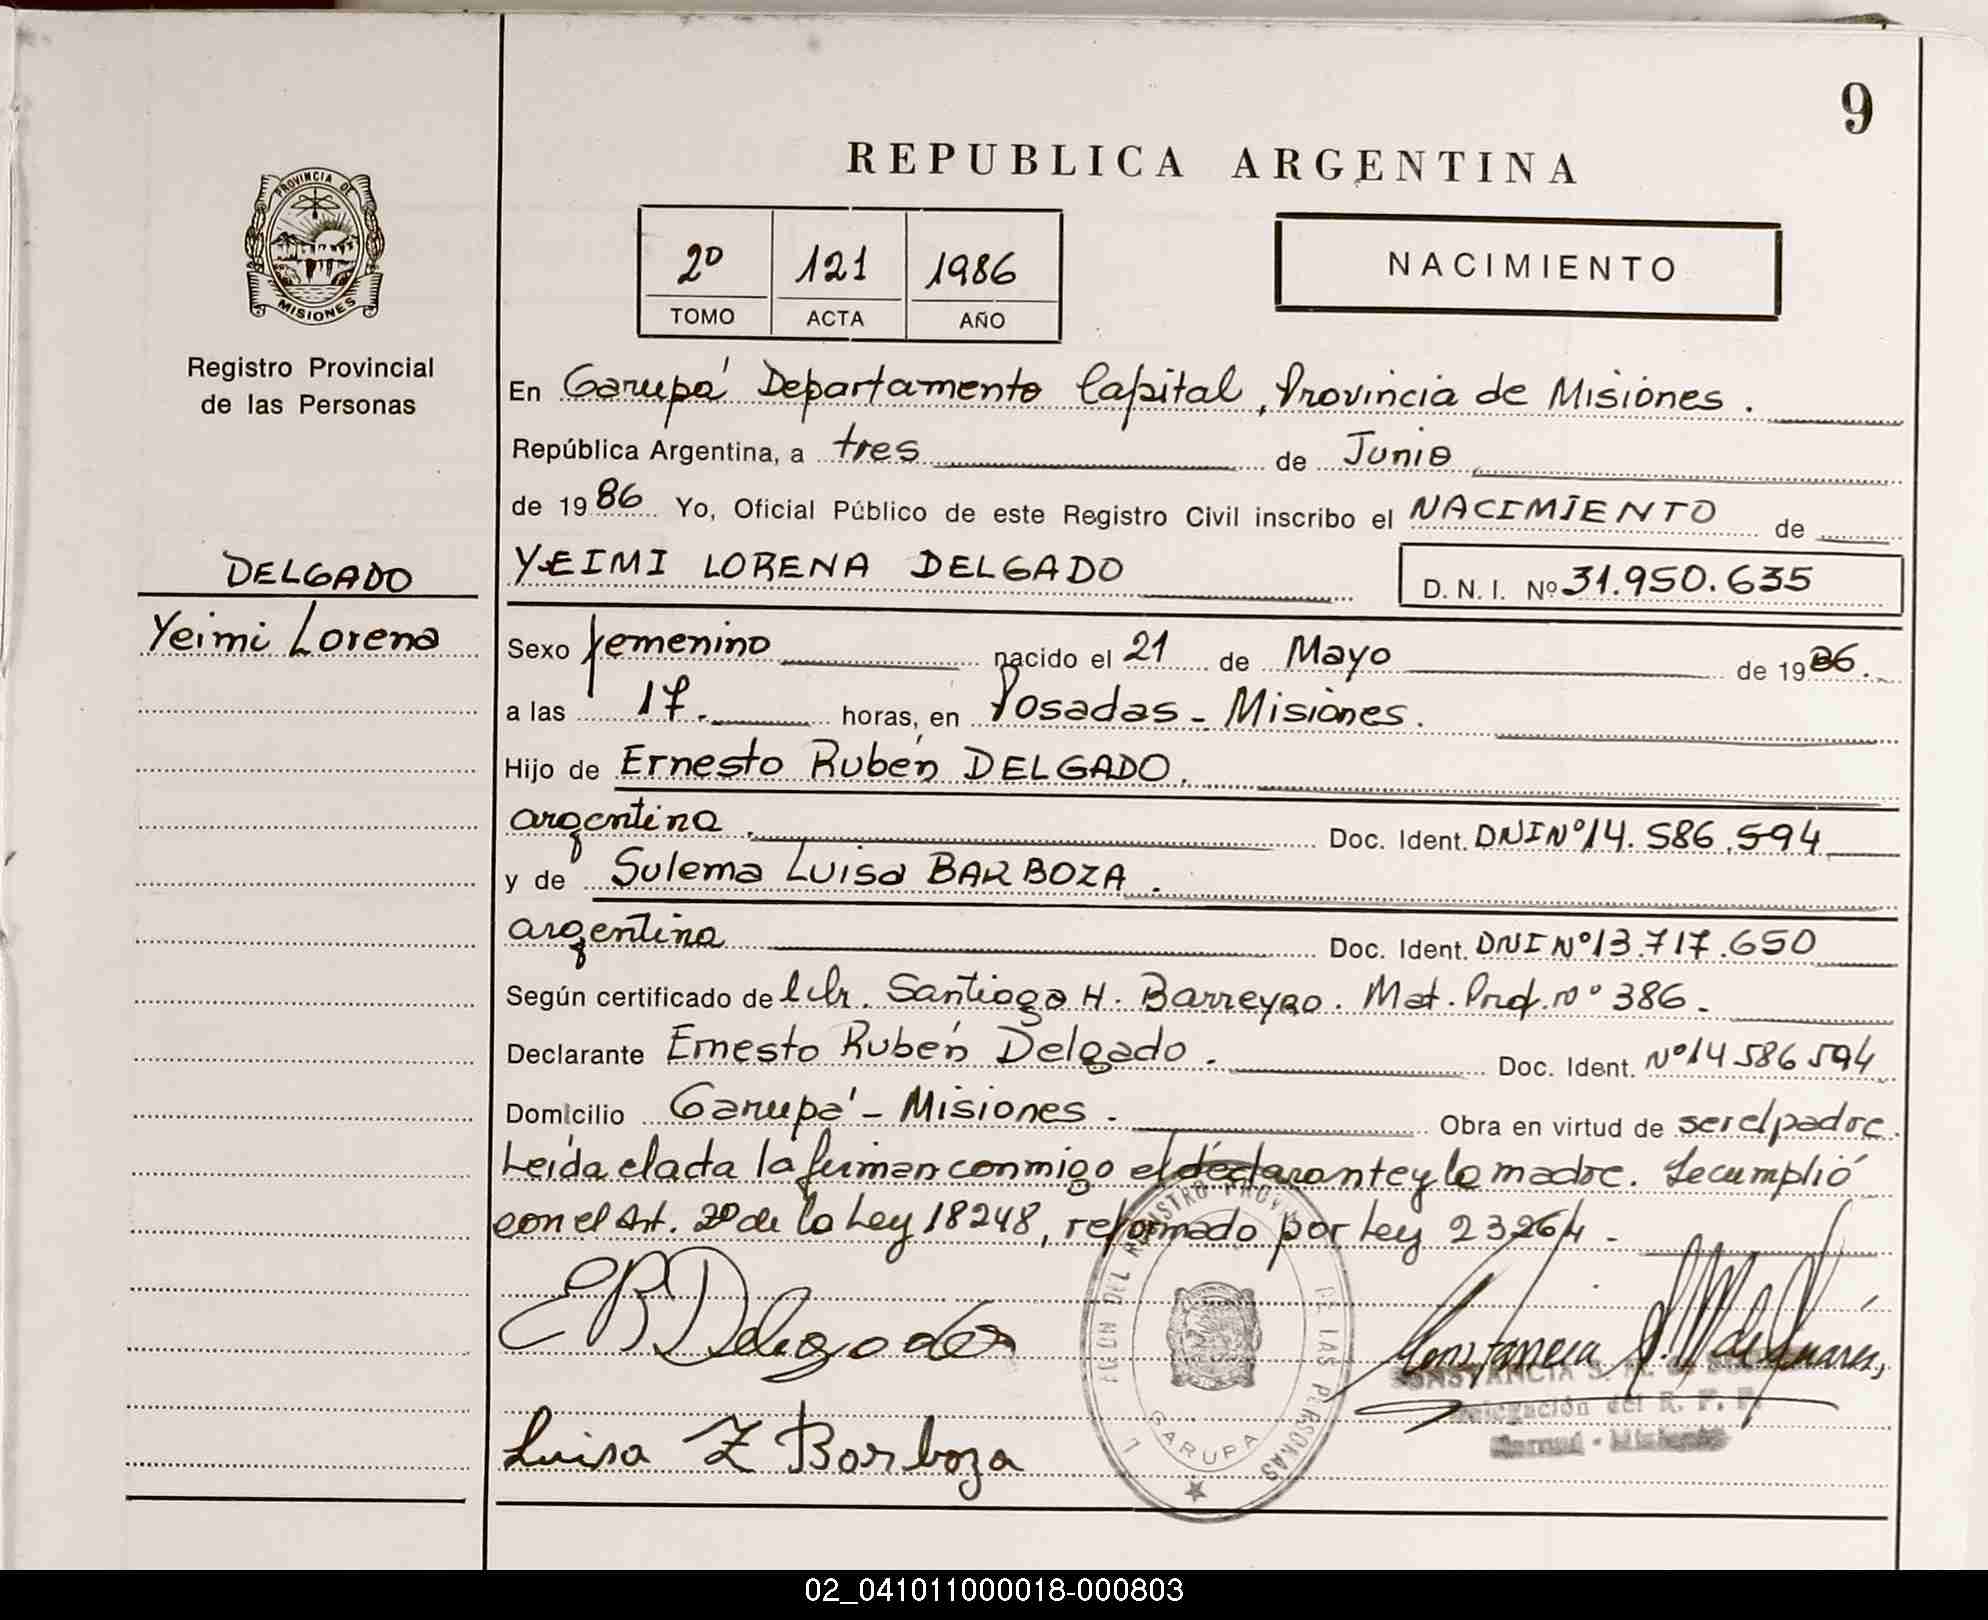 9
REPUBLICA ARGENTINA
PROVINCIA DE
MISIONES
2º 121 1986
TOMO ACTA AÑO
NACIMIENTO
Registro Provincial
de las Personas
En Garupá Departamento Capital, Provincia de Misiones.
República Argentina, a tres de Junio
de 1986 Yo, Oficial Público de este Registro Civil inscribo el NACIMIENTO de
DELGADO
YEIMI LORENA DELGADO D. N. I. Nº 31.950.635
Yeimi Lorena
Sexo femenino nacido el 21 de Mayo de 1986.
a las 17. horas, en Posadas - Misiones.
Hijo de Ernesto Rubén DELGADO.
argentina. Doc. Ident. DNI Nº 14.586.594
y de Sulema Luisa BARBOZA.
argentina Doc. Ident. DNI Nº 13.717.650
Según certificado de Santiago H. Barreyro. Mat. Prof. nº 386.
Declarante Ernesto Rubén Delgado. Doc. Ident. Nº 14586594
Domicilio Garupá - Misiones. Obra en virtud de ser el padre.
Leída el acta la firman conmigo el declarante y la madre. Se cumplió
con el Art. 2º de la Ley 18248, reformado por Ley 23264 -
ER Delgado
Luisa Z Barboza
REGISTRO PROVINCIAL DE LAS PERSONAS
GARUPA
CONSTANCIA S. M. de
Delegación del R. P. P.
Garupá - Misiones
02_041011000018-000803